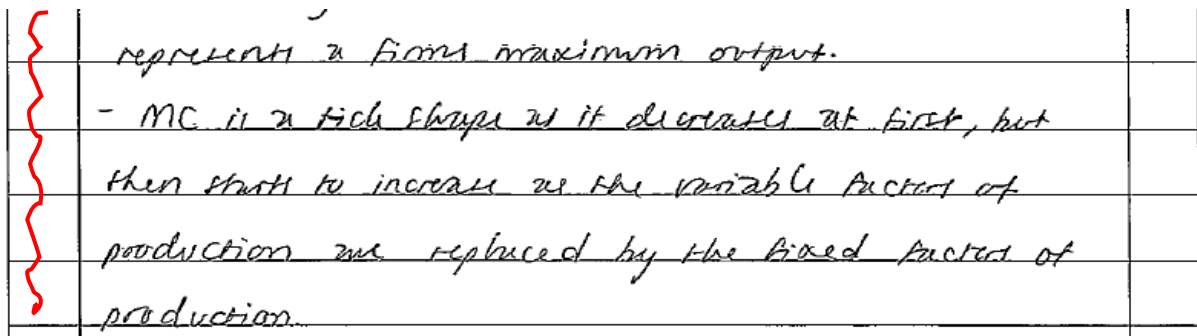 represents a firms maximum output.
- MC is a tick shape as it decreases at first, but
then starts to increase as the variable factors of
production are replaced by the fixed factors of
production.